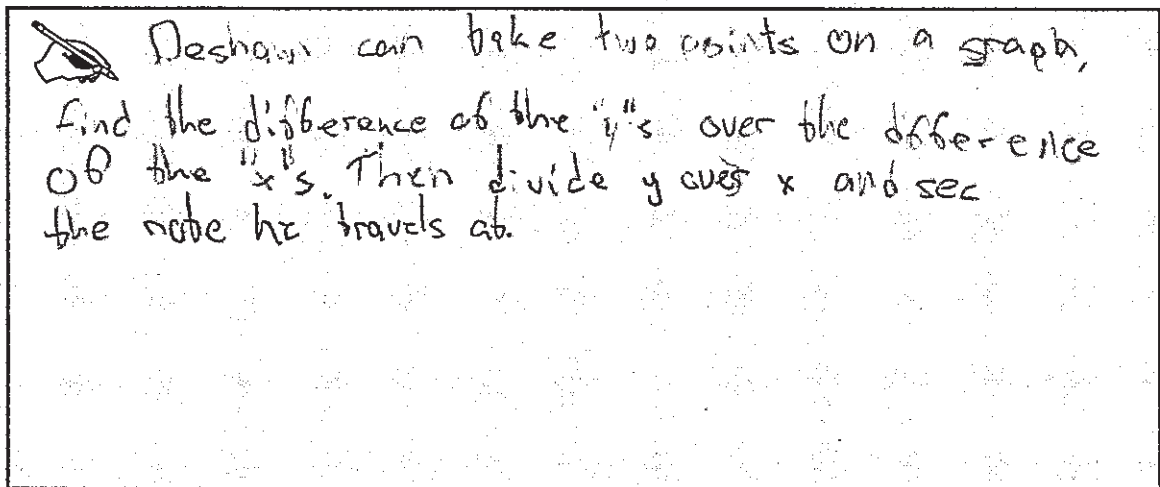 Deshawn can take two points on a graph,
find the difference of the "y"s over the difference
of the "x"s. Then divide y over x and see
the rate he travels at.